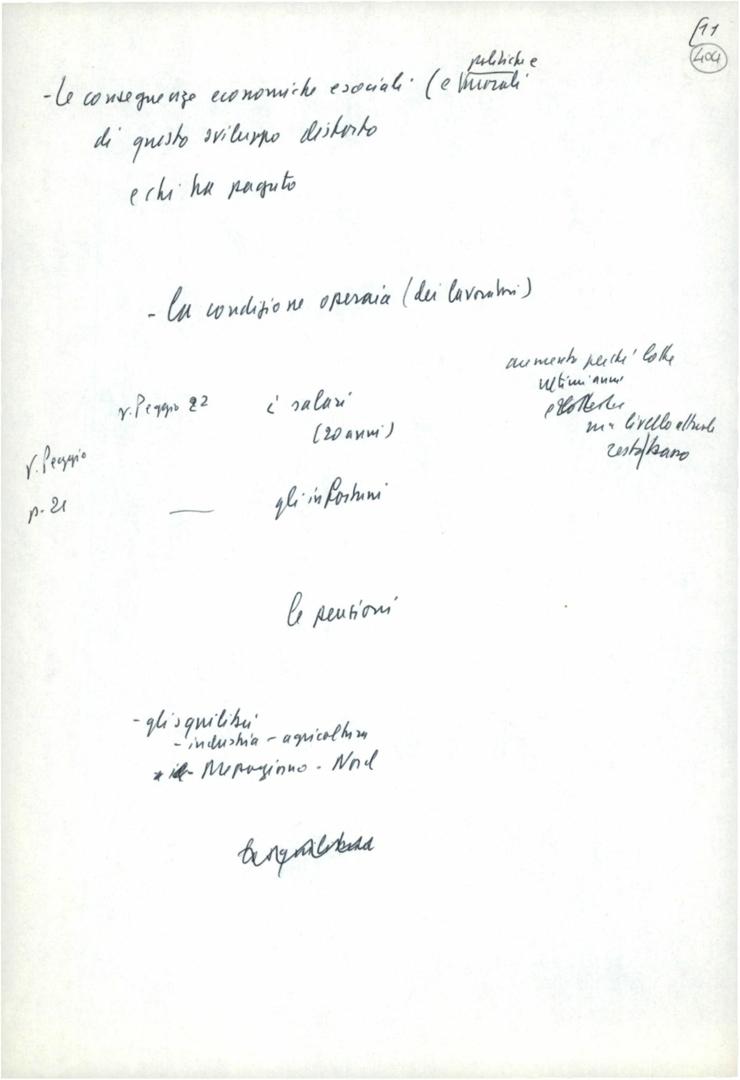 11
404
politiche e
- le conseguenze economiche e sociali (e morali
di questo sviluppo distorto
e chi ha pagato
- la condizione operaia (dei lavoratori)
aumento perché lotte
ultimi anni
v. Peggio 22 i salari
(20 anni)
ma livello attuale
resta basso
v. Peggio
p. 21 — gli infortuni
le pensioni
- gli squilibri
- industria - agricoltura
- Mezzogiorno - Nord